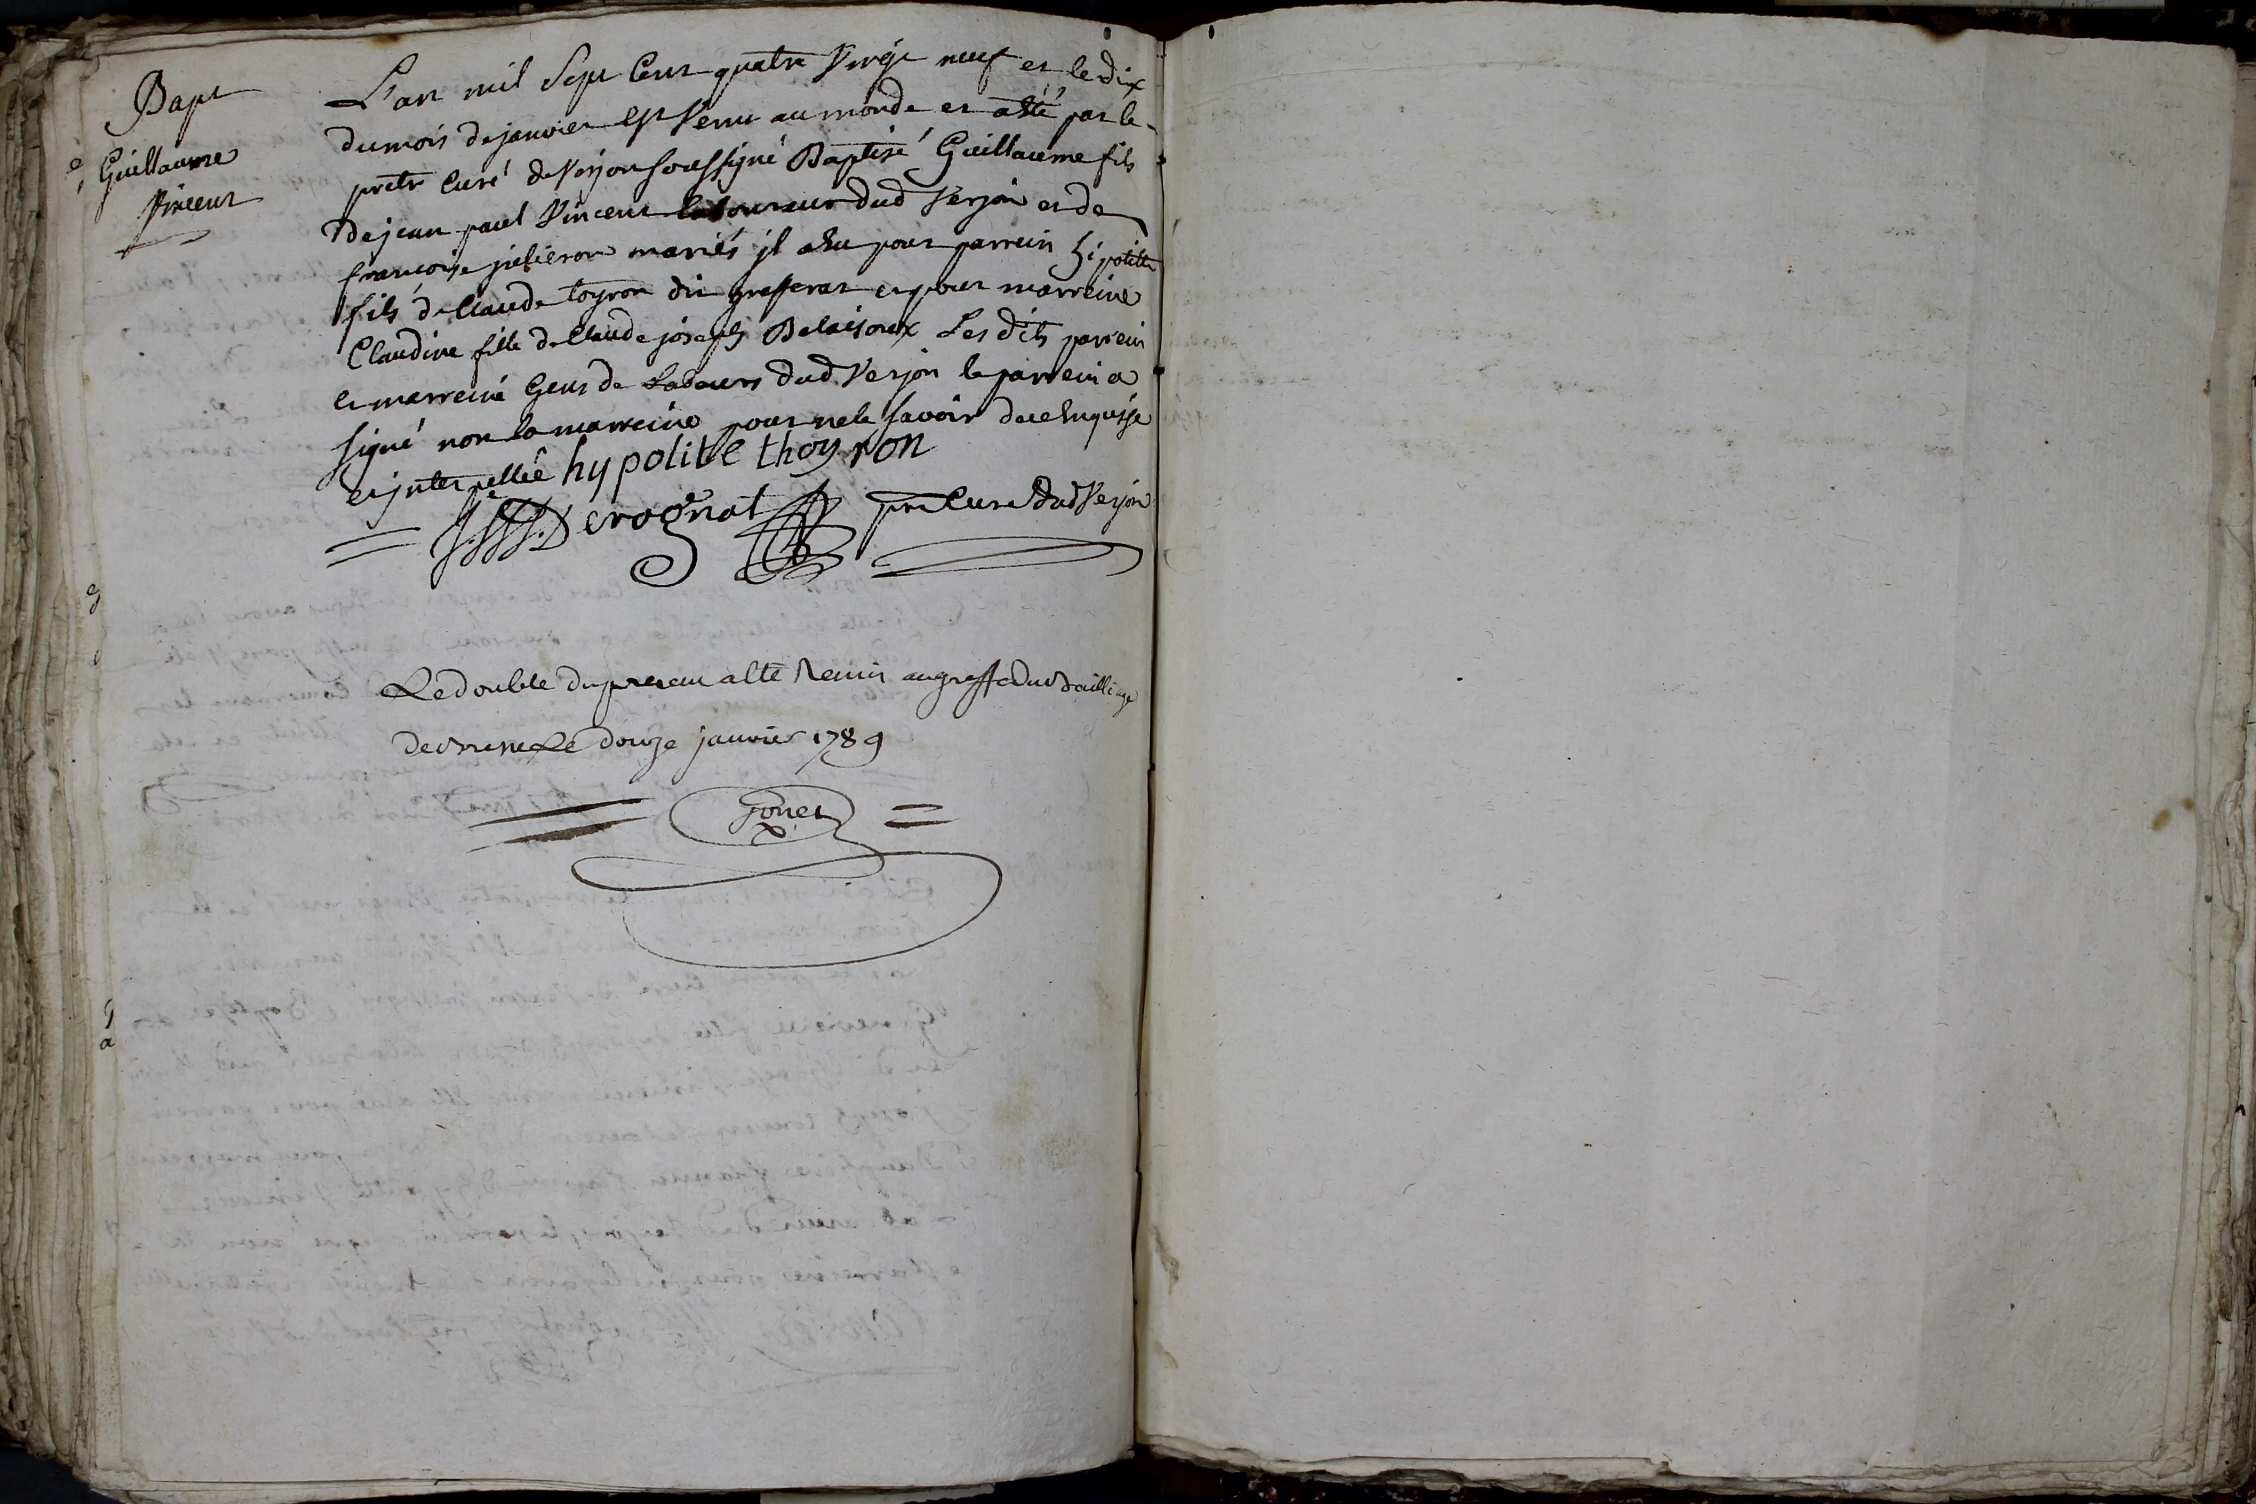 Bapt
Guillaume
Vincent
L'an mil Sept Cent quatre Vingt neuf et le dix
du mois de janvier est Venu au monde et a Eté par le
pretre Curé de Verjon soussigné Baptisé Guillaume fils
de jean paul Vincent laboureur dud Verjon et de
francoise julieron mariés jl a Eu pour parrein hipolitte
fils de Claude toyron dit grefferat et pour marreine
Claudine fille de Claude joseph Delaisoux Les dits parrein
et marreine Gens de Labeurs dud Verjon le parrein a
signé non la marreine pour ne le savoir de ce Enquise
et jnterpellée hypolite thoyron
Derognat pre Curé dud Verjon
Le double du present a Eté Remis au greffe du Bailliage
de le douze janvier 1789